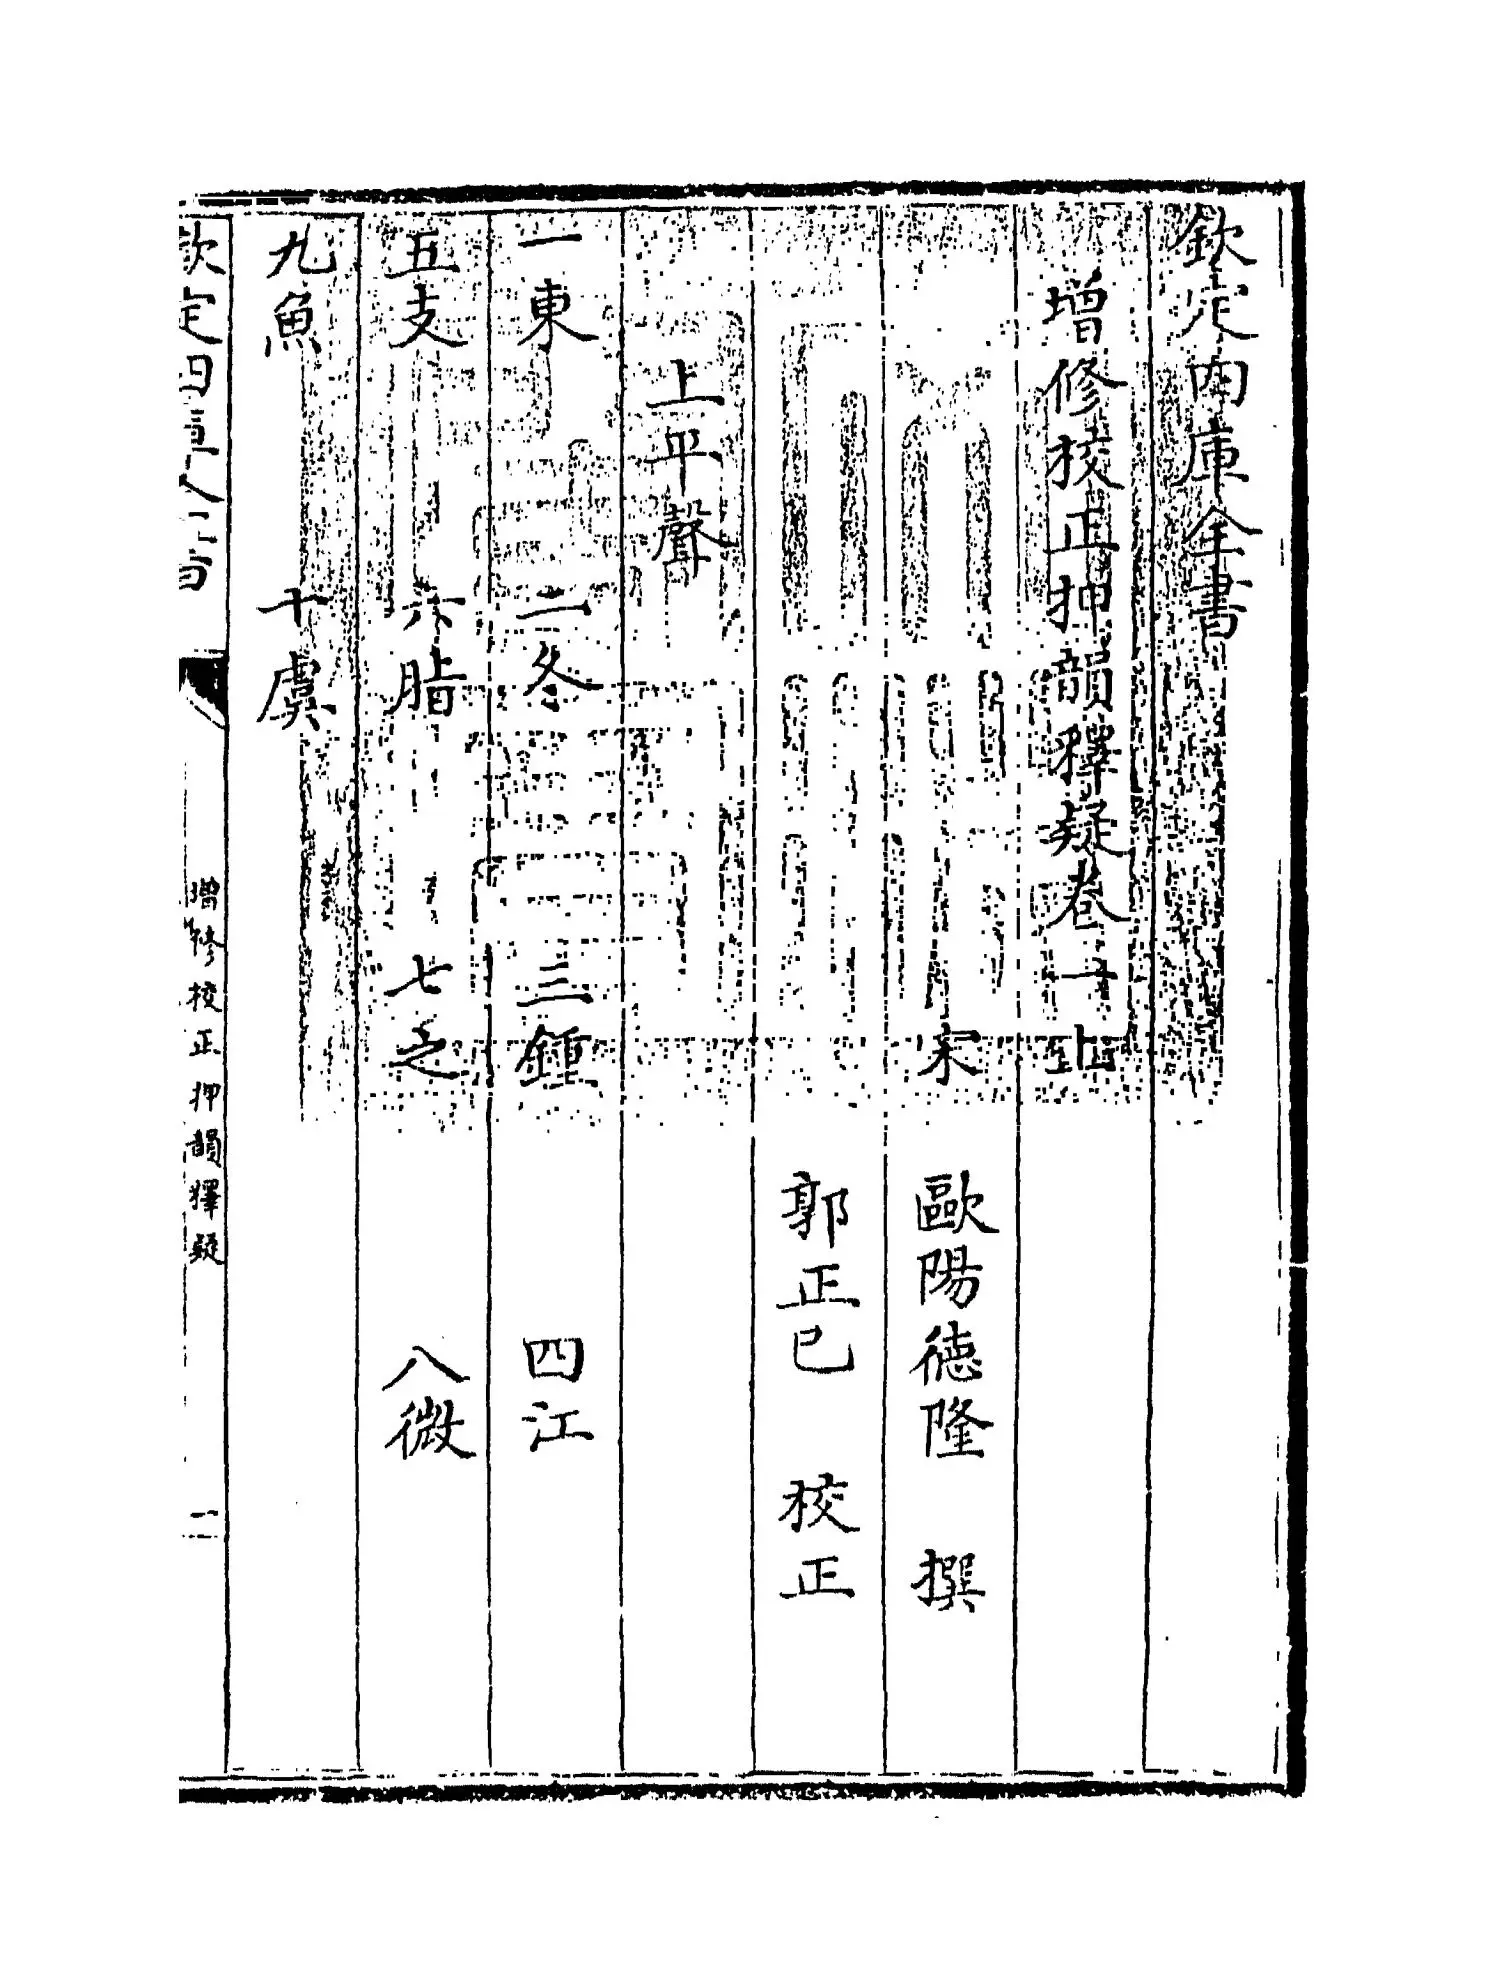 欽定四庫全書
增修校正押韻釋疑卷一上
宋 歐陽德隆 撰
郭正己 校正
上平聲
一東 二冬 三鍾 四江
五支 六脂 七之 八微
九魚 十虞
欽定四庫全書
增修校正押韻釋疑
一